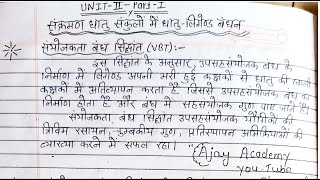 UNIT-III - Part-I
संक्रमण धातु संकुलों में धातु-लिगेण्ड बंधन
संयोजकता बंध सिद्धांत (VBT):-
इस सिद्धांत के अनुसार, उपसहसंयोजक बंध के
निर्माण में लिगेण्ड अपनी भरी हुई कक्षकों से धातु की खाली
कक्षकों में अतिव्यापन करता है जिससे उपसहसंयोजक बंध का
निर्माण होता है और बंध में सहसंयोजक गुण पाये जाते हैं।
संयोजकता बंध सिद्धांत उपसहसंयोजक यौगिकों की
त्रिविम रसायन, चुम्बकीय गुण, प्रतिस्थापन अभिक्रियाओं की
व्याख्या करने में सफल रहा।
(Ajay Academy
you-Tube